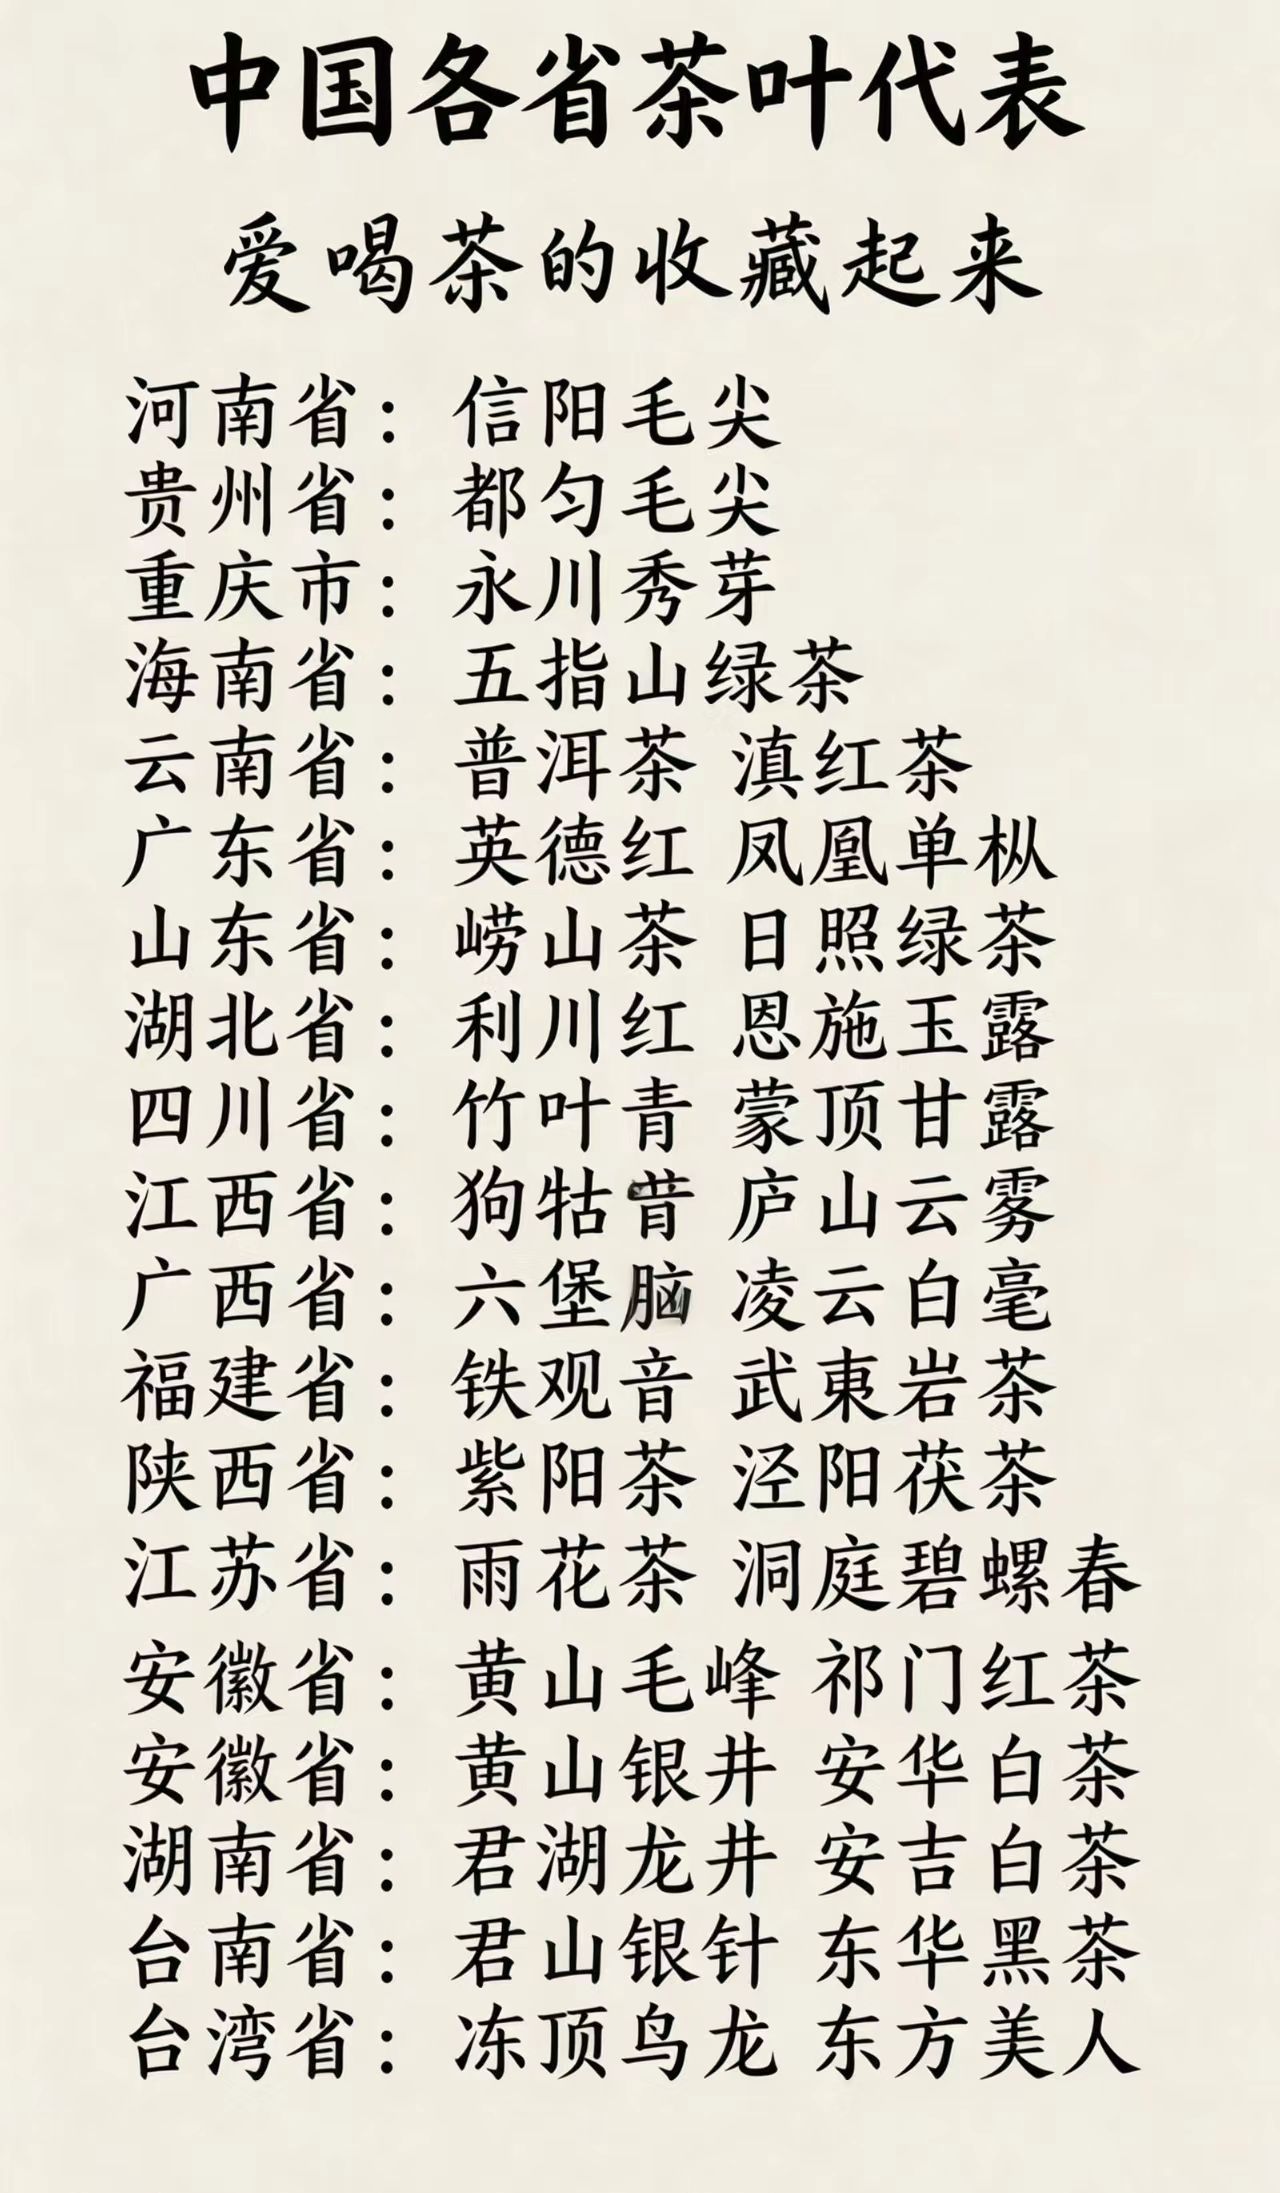 中国各省茶叶代表
爱喝茶的收藏起来
河南省：信阳毛尖
贵州省：都匀毛尖
重庆市：永川秀芽
海南省：五指山绿茶
云南省：普洱茶 滇红茶
广东省：英德红 凤凰单枞
山东省：崂山茶 日照绿茶
湖北省：利川红 恩施玉露
四川省：竹叶青 蒙顶甘露
江西省：狗牯 庐山云雾
广西省：六堡脑 凌云白毫
福建省：铁观音 武夷岩茶
陕西省：紫阳茶 泾阳茯茶
江苏省：雨花茶 洞庭碧螺春
安徽省：黄山毛峰 祁门红茶
安徽省：黄山银井 安华白茶
湖南省：君湖龙井 安吉白茶
台南省：君山银针 东华黑茶
台湾省：冻顶乌龙 东方美人